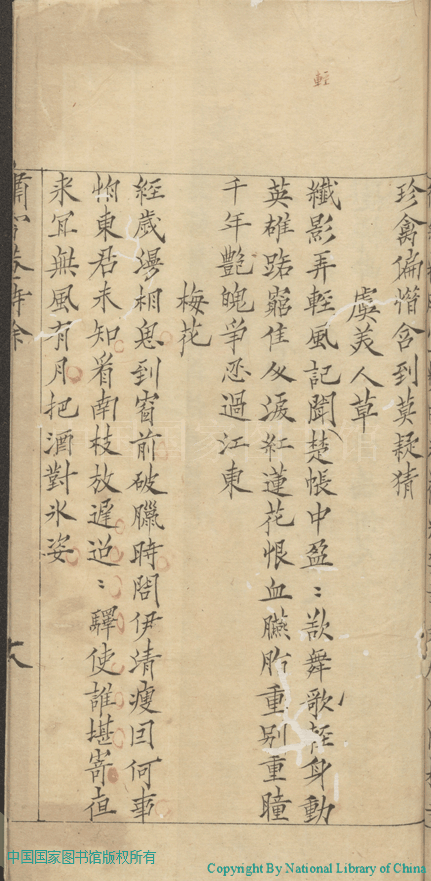 輕
珍禽偏惜含到莫疑猜
虞美人草
纎影弄輕風記聞楚帳中盈〻歌舞歌輕身動
英雄路窮佳人淚紅蓮花恨血臙脂重別重瞳
千年艷魄爭忍過江東
梅花
經歲漫相思到窗前破臘時問伊清瘦因何事
怕東君未知看南枝放遲迢〻驛使誰堪寄直
来宜無風有月把酒對氷姿
中国国家图书馆版权所有
Copyright By National Library of China